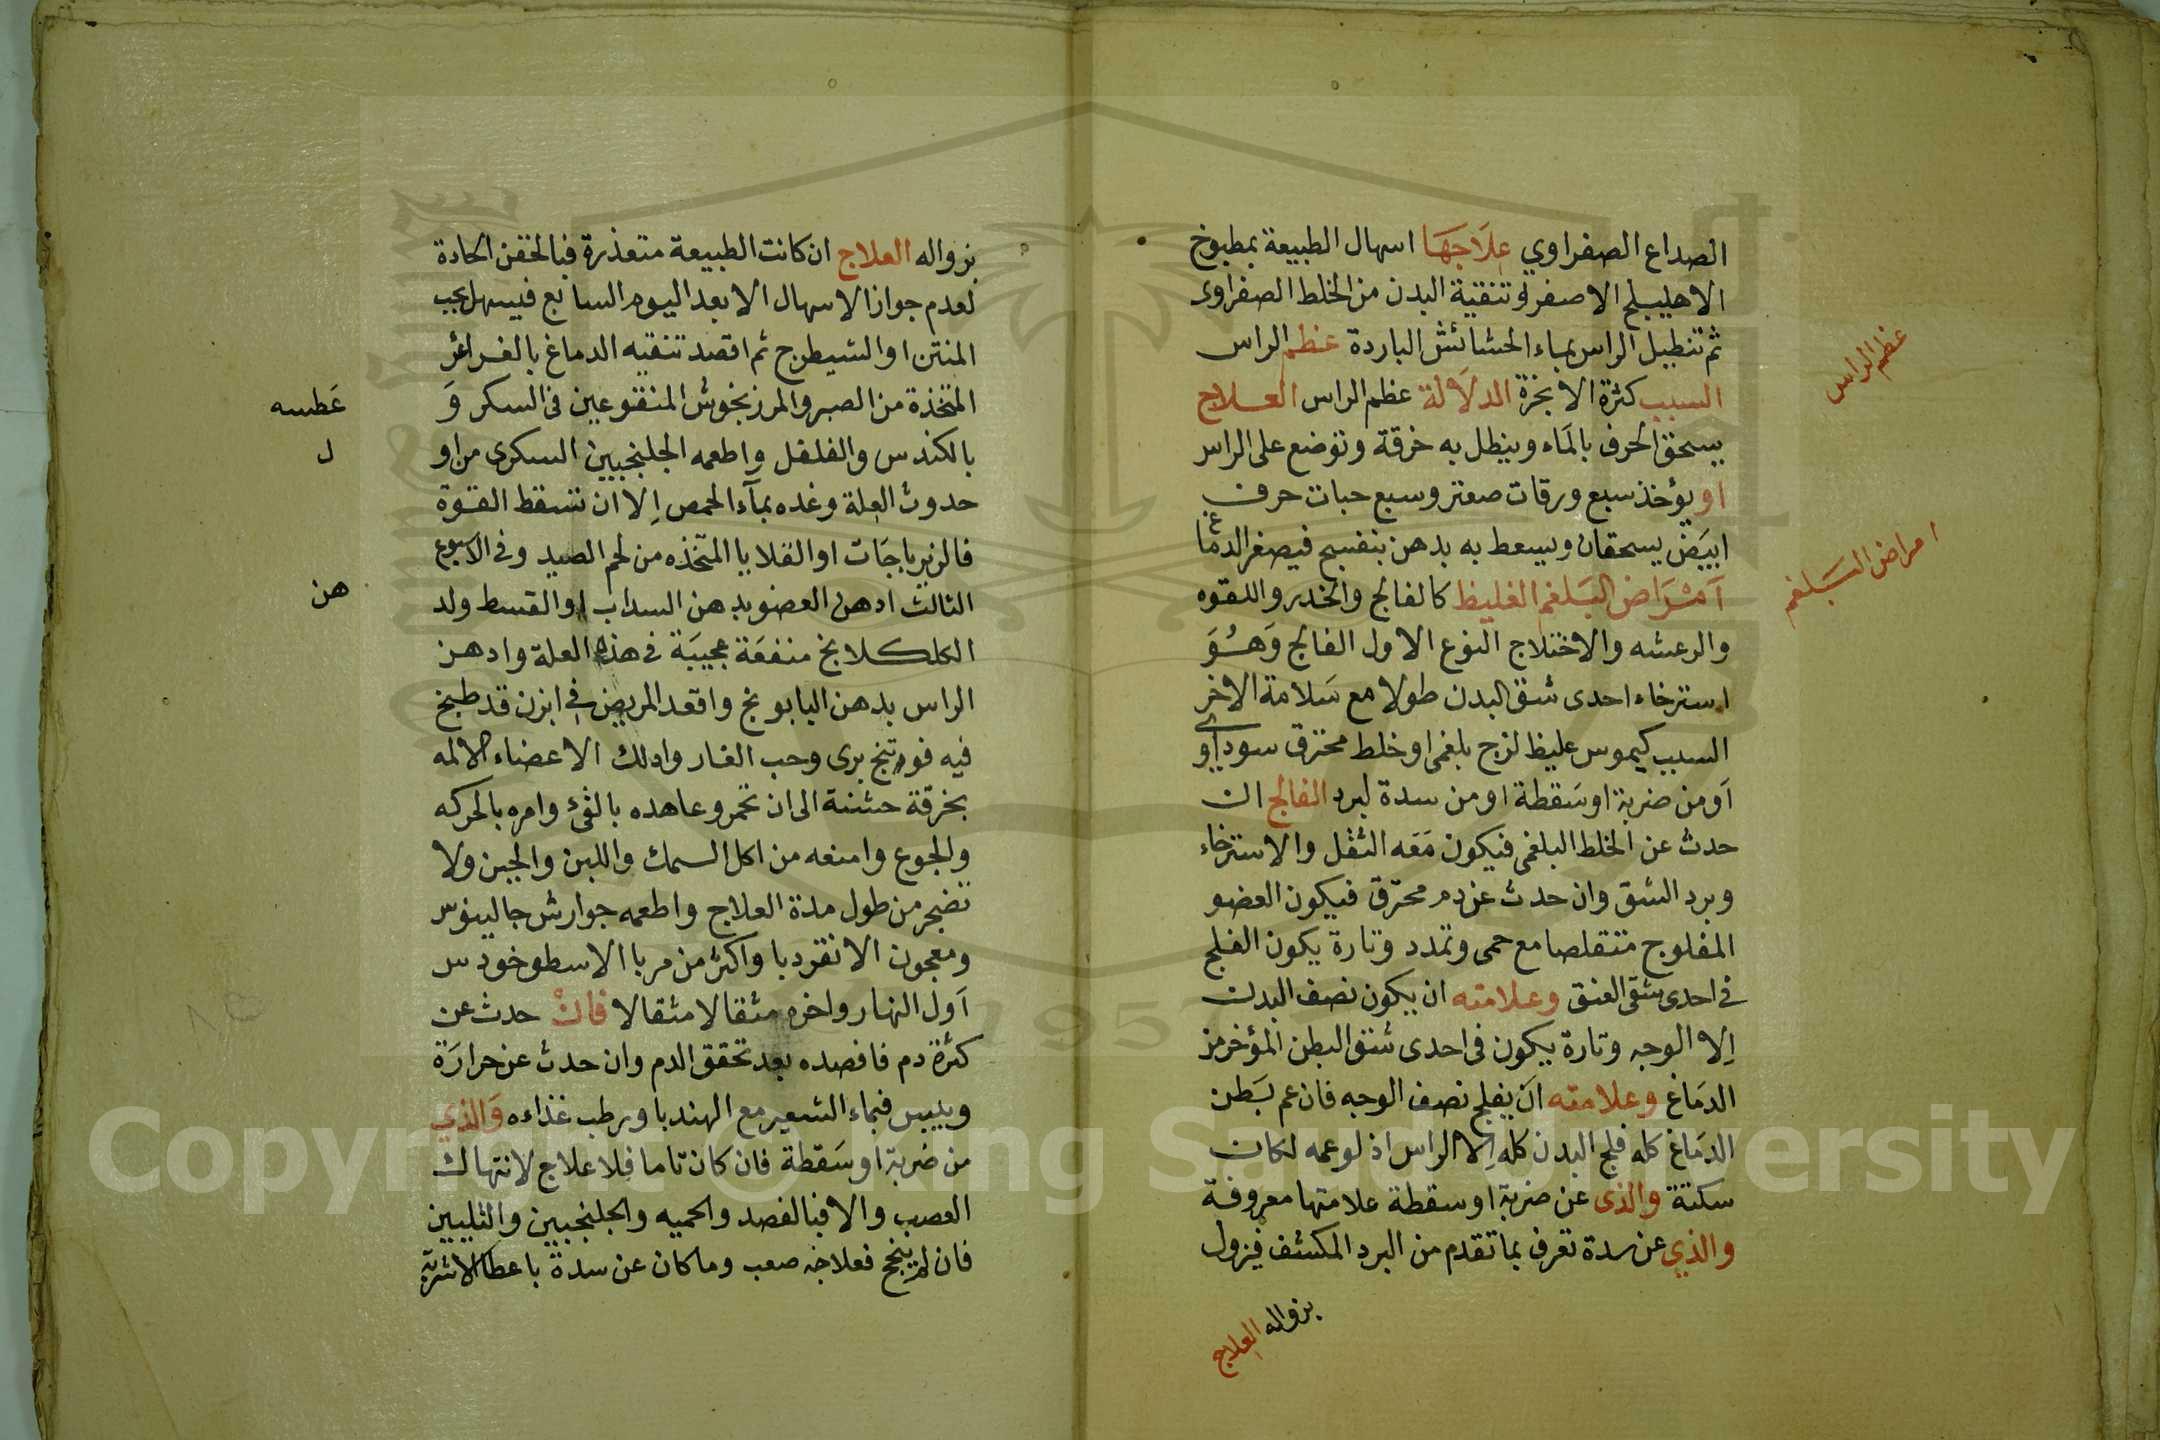 الصداع الصفراوي علاجها اسهال الطبيعة بمطبوخ
الاهليلج الاصفر او تنقية البدن من الخلط الصفراوى
ثم تنطيل الراس بماء الحشائش الباردة عظم الراس
السبب كثرة الابخرة الدلالة عظم الراس العلاج
يسحق الحرف بالماء ويبطل به خرقة وتوضع على الراس
او يؤخذ سبع ورقات صعتر وسبع حبات حرف
ابيض يسحقان ويسعط به بدهن بنفسج فيصغر الدماغ
امراض البلغم الغليظ كالفالج والخدر واللقوه
والرعشه والاختلاج النوع الاول الفالج وهو
استرخاء احدى شق البدن طولا مع سلامة الاخر
السبب كيموس غليظ لزج بلغمى او خلط محترق سوداوى
او من ضربة او سقطة او من سدة لبرد الفالج ان
حدث عن الخلط البلغمى فيكون معه الثقل والاسترخاء
وبرد الشق وان حدث عن دم محترق فيكون العضو
المفلوج متقلصا مع حمى وتمدد وتارة يكون الفلج
فى احدى شقى العنق وعلامته ان يكون نصف البدن
الا الوجه وتارة يكون فى احدى شق البطن المؤخر من
الدماغ وعلامته ان يفلج نصف الوجه فان عم بطن
الدماغ كله فلج البدن كله الا الراس اذ لو عمه لكان
سكتة والذى عن ضربة او سقطة علامتها معروفة
والذي عن سدة تعرف بما تقدم من البرد المكشف فيزول
بزواله العلاج
عظم الراس
امراض البلغم
بزواله العلاج ان كانت الطبيعة متعذرة فبالحقن الحادة
لعدم جواز الاسهال الا بعد اليوم السابع فيسهل بحب
المنتن او الشيطرج ثم اقصد تنقيه الدماغ بالغرائر
المتخذة من الصبر والمرزنجوش المنقوعين فى السكر و
بالكندس والفلفل واطعمه الجلنجبين السكرى من او
حدوث العلة وغده بمآء الحمص الا ان تسقط القوة
فالزيرباجات او القلايا المتخذه من لحم الصيد وفى الاسبوع
الثالث ادهن العضو بدهن السداب او القسط ولد
الكلكلانج منفعة عجيبة فى هذه العلة وادهن
الراس بدهن البابونج واقعد المريض فى ابزن قد طبخ
فيه فوتنج برى وحب الغار وادلك الاعضاء الالمه
بخرقة خشنة الى ان تحمر وعاهده بالقئ وامره بالحركه
والجوع وامنعه من اكل السمك واللبن والجبن ولا
تضجر من طول مدة العلاج واطعمه جوارش جالينوس
ومعجون الانقرديا واكثر من مربا الاسطوخودس
اول النهار واخره مثقالا مثقالا فان حدث عن
كثرة دم فافصده بعد تحقق الدم وان حدث عن حرارة
ويبس فبماء الشعير مع الهندبا ورطب غذاءه والذي
من ضربة او سقطة فان كان تاما فلا علاج لانتهاك
العصب والا فبالفصد والحميه والجلنجبين والتليين
فان لم ينجح فعلاجه صعب وما كان عن سدة باعطا الاشربة
عطسه
ل
هن
Copyright © King Saud University
1957